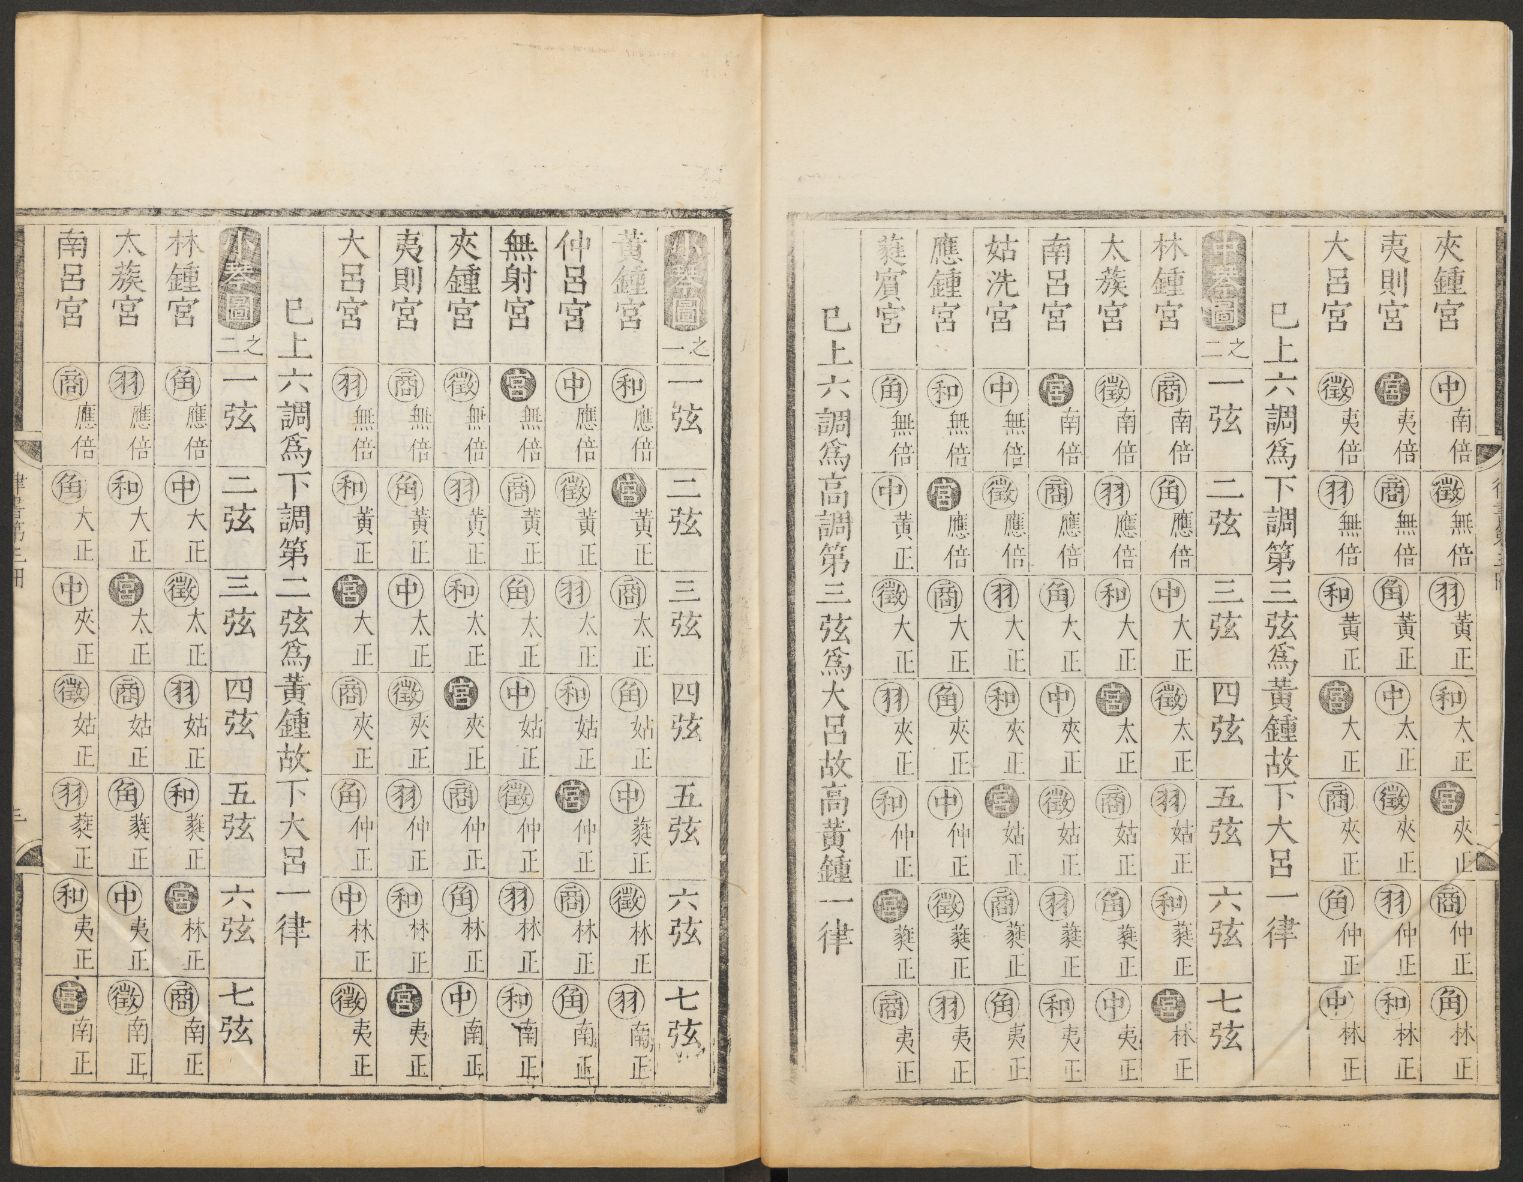 夾鍾宮 中南倍 徵無倍 羽黃正 和太正 宮夾正 商仲正 角林正
夷則宮 宮夷倍 商無倍 角黃正 中太正 徵夾正 羽仲正 和林正
大呂宮 徵夷倍 羽無倍 和黃正 宮大正 商夾正 角仲正 中林正
巳上六調爲下調第三弦爲黃鍾故下大呂一律
中琴圖之二 一弦 二弦 三弦 四弦 五弦 六弦 七弦
林鍾宮 商南倍 角應倍 中大正 徵太正 羽姑正 和蕤正 宮林正
太蔟宮 徵南倍 羽應倍 和大正 宮太正 商姑正 角蕤正 中夷正
南呂宮 宮南倍 商應倍 角大正 中夾正 徵姑正 羽蕤正 和夷正
姑洗宮 中無倍 徵應倍 羽大正 和夾正 宮姑正 商蕤正 角夷正
應鍾宮 和無倍 宮應倍 商大正 角夾正 中仲正 徵蕤正 羽夷正
蕤賓宮 角無倍 中黃正 徵大正 羽夾正 和仲正 宮蕤正 商夷正
巳上六調爲高調第三弦爲大呂故高黃鍾一律
小琴圖之一 一弦 二弦 三弦 四弦 五弦 六弦 七弦
黃鍾宮 和應倍 宮黃正 商太正 角姑正 中蕤正 徵林正 羽南正
仲呂宮 中應倍 徵黃正 羽太正 和姑正 宮仲正 商林正 角南正
無射宮 宮無倍 商黃正 角太正 中姑正 徵仲正 羽林正 和南正
夾鍾宮 徵無倍 羽黃正 和太正 宮夾正 商仲正 角林正 中南正
夷則宮 商無倍 角黃正 中太正 徵夾正 羽仲正 和林正 宮夷正
大呂宮 羽無倍 和黃正 宮大正 商夾正 角仲正 中林正 徵夷正
巳上六調爲下調第二弦爲黃鍾故下大呂一律
小琴圖之二 一弦 二弦 三弦 四弦 五弦 六弦 七弦
林鍾宮 角應倍 中大正 徵太正 羽姑正 和蕤正 宮林正 商南正
太蔟宮 羽應倍 和大正 宮太正 商姑正 角蕤正 中夷正 徵南正
南呂宮 商應倍 角大正 中夾正 徵姑正 羽蕤正 和夷正 宮南正